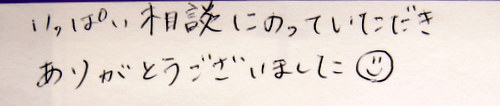 いっぱい相談にのっていただき
ありがとうございました☺